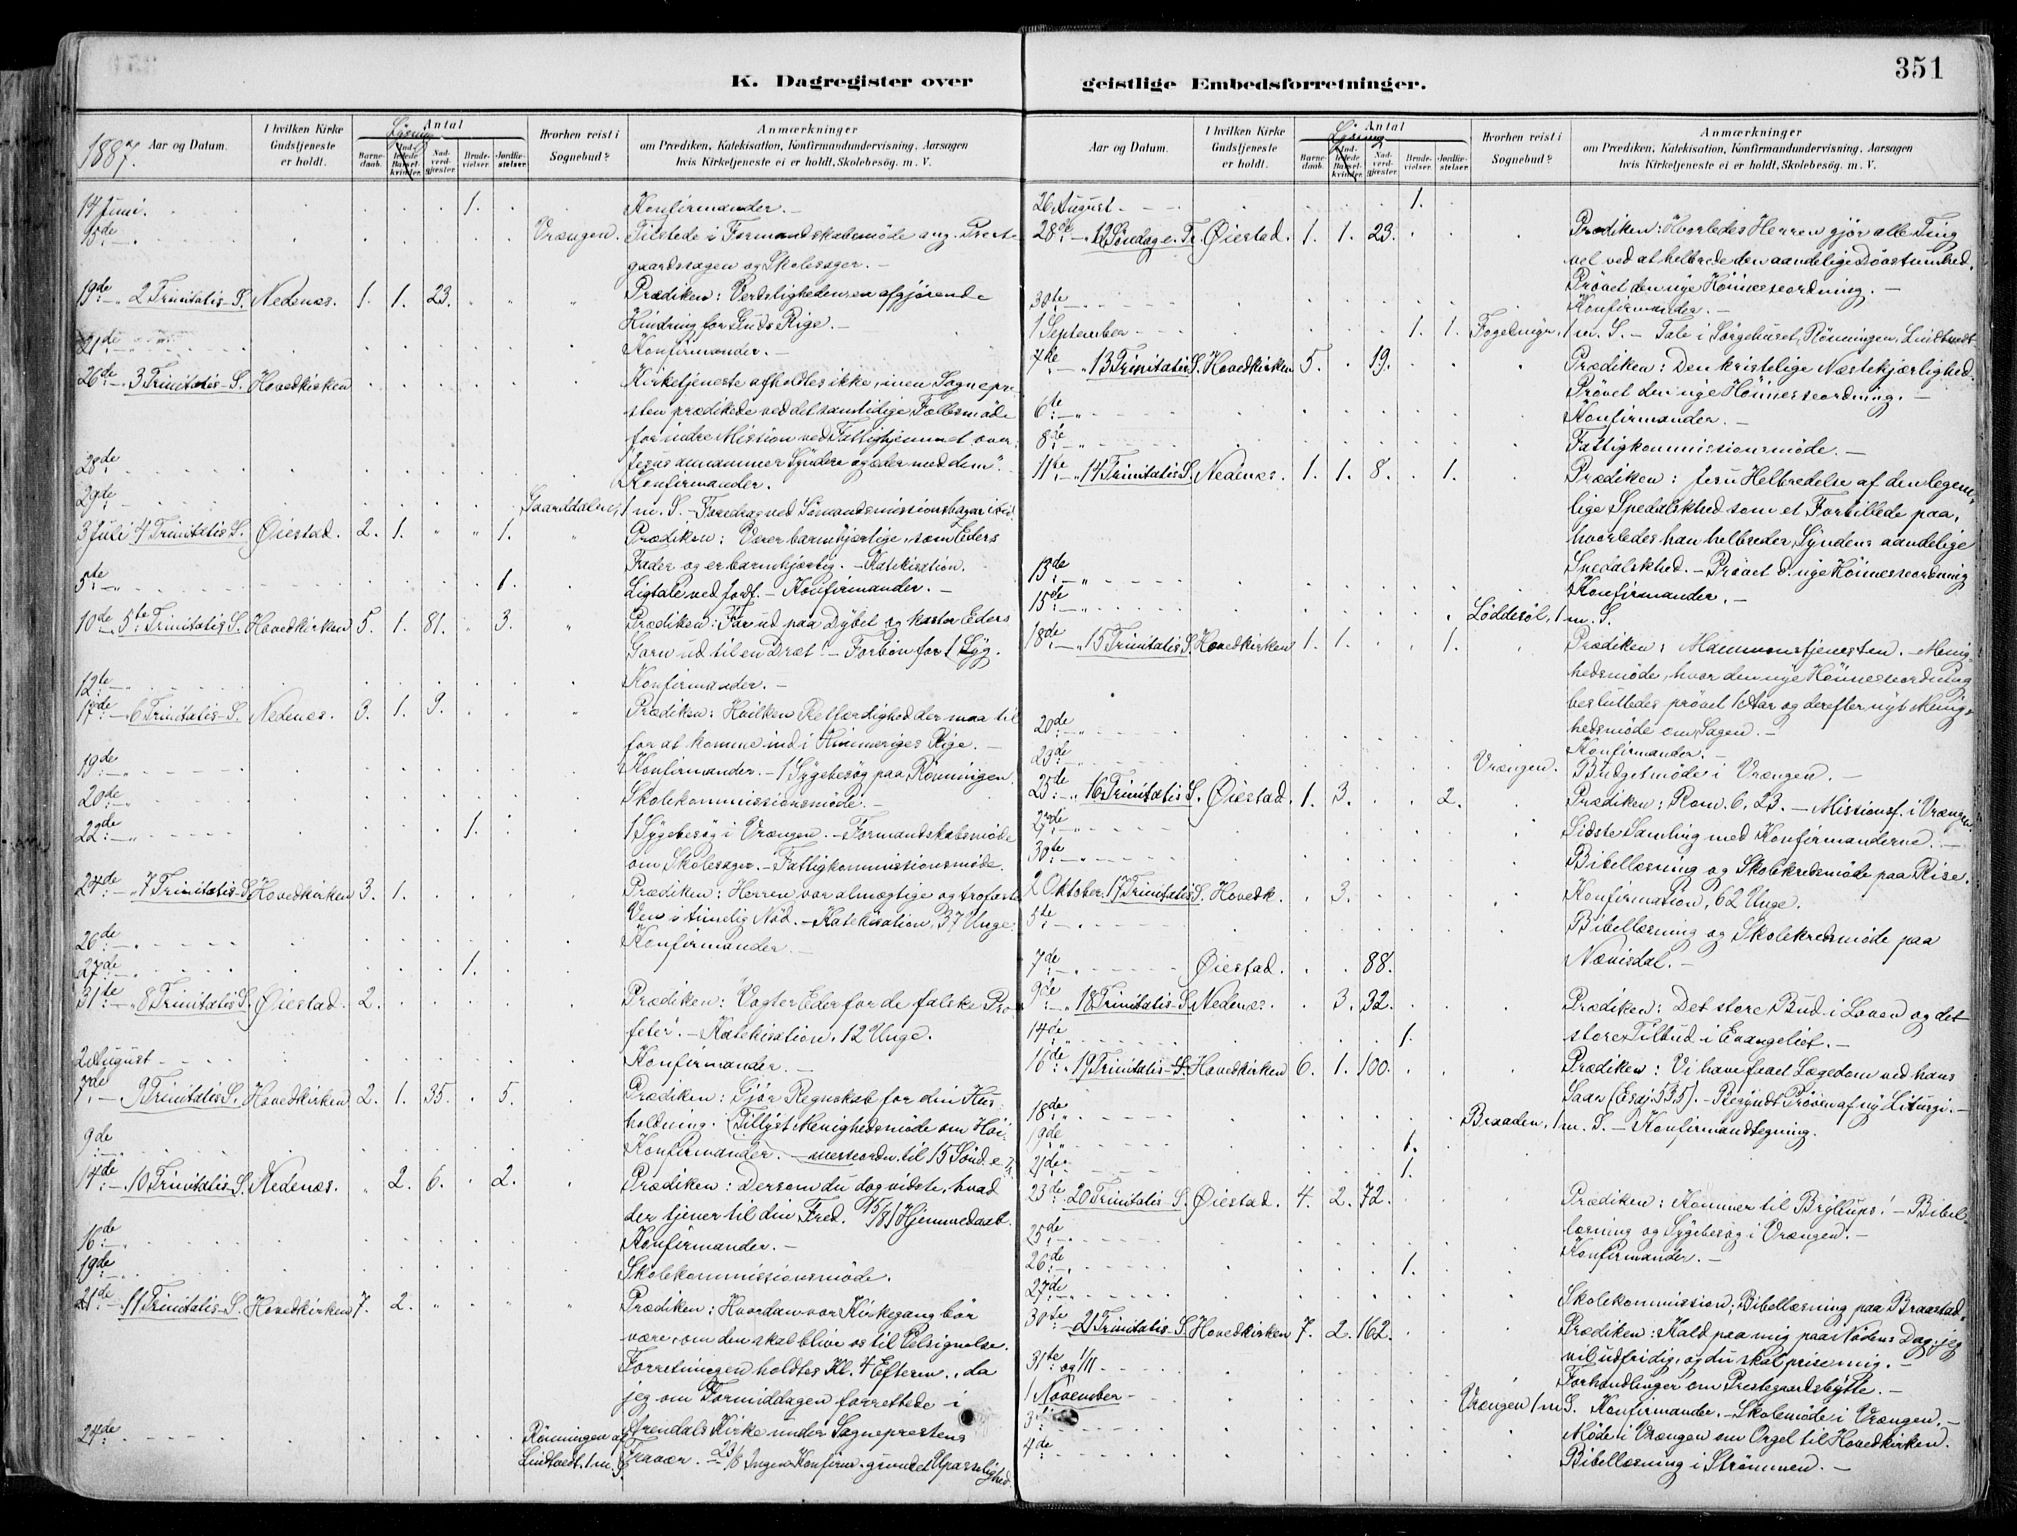 351
K. Dagregister over geistlige Embedsforretninger.
Aar og Datum. I hvilken Kirke Gudstjeneste er holdt. Antal Barnedaab. Indledede Barselkvinder. Nadverdgjæster. Brudevielser. Jordfæstelser. Hvorhen reist i Sognebud? Anmærkninger om Prædiken, Katekisation, Konfirmandundervisning, Aarsagen hvis Kirketjeneste ei er holdt, Skolebesög. m. V.
Lysning
1887.
14 Juni. 1. Konfirmander. —
15de Vrængen. Tilstede i Formandskabsmöde ang. Præste
gaardssagen og Skolesager. —
19de 2 Trinitatis S. Nedenæs. 1. 1. 23. Prædiken: Verdsligheden en afgjörende
Hindring for Guds Rige. —
21de Konfirmander. —
26de 3 Trinitatis S. Hovedkirken Kirketjeneste afholdtes ikke, men Sognepre-
sten prædikede ved det samtidige Fællesmöde
for indre Mission ved Fattighjemmet over
"Jesus annammer Syndere og æder med dem".
28de Konfirmander.
29de 1 m. S. — Foredrag ved Sömandsmissionsbazar
3 Juli 4 Trinitatis S. Øiestad. 2. 1. " " 1. Prædiken: Værer barmhjertige, som Eders
Fader og er barmhjertig. — Katekisation.
5te 1. Ligtale ved Jordf. — Konfirmander. —
10de 5te Trinitatis S. Hovedkirken 5. 1. 81. 3. Prædiken: Far ud paa Dybet og kaster Eders
Garn ud til en Dræt! — Forbön for 1 Syg.
12te Konfirmander. —
17de 6 Trinitatis S. Nedenæs. 3. 1. 9. Prædiken: Hvilken Retfærdighed der maa til
for at komme ind i Himmeriges Rige. —
19de Konfirmander. — 1 Sygebesög paa Rönningen.
20de Skolekommissionsmöde. —
22de 1. 1 Sygebesög i Vrængen. — Formandskabsmöde
om Skolesager. — Fattigkommissionsmöde.
24de 7 Trinitatis S. Hovedkirken 3. 1. Prædiken: Herren vor almægtige og trofaste
Ven i timelig Nöd. — Katekisation, 37 Unge.
26de Konfirmander —
27de 1.
31te 8 Trinitatis S. Øiestad. 2. Prædiken: Vogter Eder for de falske Pro-
feter. — Katekisation. 12 Unge.
2 August Konfirmander. —
7de 9 Trinitatis S. Hovedkirken 2. 1. 35. 5. Prædiken: Gjör Regnskab for din Hus-
holdning. (Tillyst Menighedsmöde om Höi-
9de Konfirmander. — messeordn. til 15 Sönd. e. Tr.
14de 10 Trinitatis S. Nedenæs. " 2. 6. 2. Prædiken: Dersom du dog vidste, hvad
der tjener til din Fred. 15/8 1 Hjemmedaab.
16de Konfirmander. —
19de Skolekommissionsmöde.
21de 11 Trinitatis S. Hovedkirken 7. 2. " Prædiken: Hvordan vor Kirkegang bör
være, om den skal blive os til Velsignelse.
Forretningen holdtes Kl. 4 Efterm., da
jeg om Formiddagen forrettede i
Arendals Kirke under Sogneprestens
24de Rönningen af Lindtvedt. 1 m. S. Fravær. — 23/8 Ingen Konfirm. grundet Upasselighed.
26 August 1.
28de 12 Söndag e. Tr. Øiestad. 1. 1. 23. Prædiken: Hvorledes Herren gjör alle Ting
vel ved at helbrede den aandelige Dövstumhed.
Prövet den nye Höimesseordning. —
30te Konfirmander. —
1 September 1. 1. 1 m. S. — Tale i Sörgehuset, Rönningen, Lindtvedt
4de 13 Trinitatis S. Hovedkirken 5. 19. Prædiken: Den kristelige Næstekjærlighed.
Prövet den nye Höimesseordning. —
6te Konfirmander. —
8de Fattigkommissionsmöde. —
11te 14 Trinitatis S. Nedenæs. 1. 1. 8. 1. Prædiken: Jesu Helbredelse af den legem-
lige Spedalskhed som et Forbillede paa,
hvorledes han helbreder Syndens aandelige
Spedalskhed. — Prövet d. nye Höimesseordning
13de Konfirmander. —
15de Löddesöl, 1 m. S.
18de 15 Trinitatis S. Hovedkirken 1. 1. 1. Prædiken: Mammonstjenesten. — Menig-
hedsmöde, hvor den nye Höimesseordning
besluttedes prövet 1 Aar og derefter nyt Menig-
hedsmöde om Sagen. —
20de Konfirmander. —
23de Vrængen. Budgetmöde i Vrængen. —
25de 16 Trinitatis S. Øiestad. 1. 3. 2. Prædiken: Rom. 6, 23. — Missionsf. i Vrængen.
27de Sidste Samling med Konfirmanderne. —
30te Bibellæsning og Skolekredsmöde paa Rise.
2 Oktober. 17 Trinitatis S. Hovedk. 3. Konfirmation, 62 Unge.
5te Bibellæsning og Skolekredsmöde paa
Nævisdal. —
7de Øiestad. 88.
9de 18 Trinitatis S. Nedenæs. 3. 32. Prædiken: Det store Bud i Loven og det
store Tilbud i Evangeliet. —
14de 1.
16de 19 Trinitatis S. Hovedkirken 6. 1. 100. Prædiken: Vi have faaet Lægedom ved hans
Saar (Esaj. 53,5). — Begyndt Pröven af ny Liturgi. —
18de Braaden, 1 m. S. — Konfirmandtegning.
19de 1.
21de 1.
23de 20 Trinitatis S. Øiestad. 4. 2. 72. Prædiken: Kommer til Bryllups! — Bibel-
læsning og Sygebesög i Vrængen. —
25de Konfirmander. —
26de 1.
27de Skolekommission; Bibellæsning paa Braastad.
30te 21 Trinitatis S. Hovedkirken 7. 2. 162. Prædiken: Kald paa mig paa Nödens Dag, jeg
vil udfri dig, og du skal prise mig. —
31te og 1/11 Forhandlinger om Prestegaardsbytte. —
1 November Vrængen 1 m S. Konfirmander. — Skolemöde i Vrængen. —
3de Möde i Vrængen om Orgel til Hovedkirken.
4de Bibellæsning i Strömmen. —